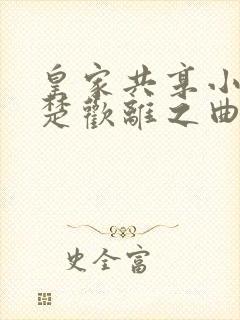 皇家共享小
楚歡離之曲
史全富